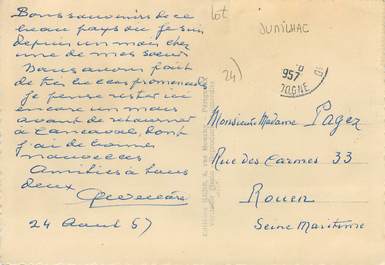 Bons souvenirs de ce
beau pays où je suis
depuis un mois chez
une de mes soeurs
Nous avons fait
de très belles promenades
je pense rester ici
encore un mois
avant de retourner
à Cancaval, dont
j'ai de bonnes
nouvelles
Amitiés à tous
deux
24 Aout 57
lot
JUMILHAC
24)
957
DOGNE
Monsieur Madame Pagez
Rue des Carmes 33
Rouen
Seine Maritime